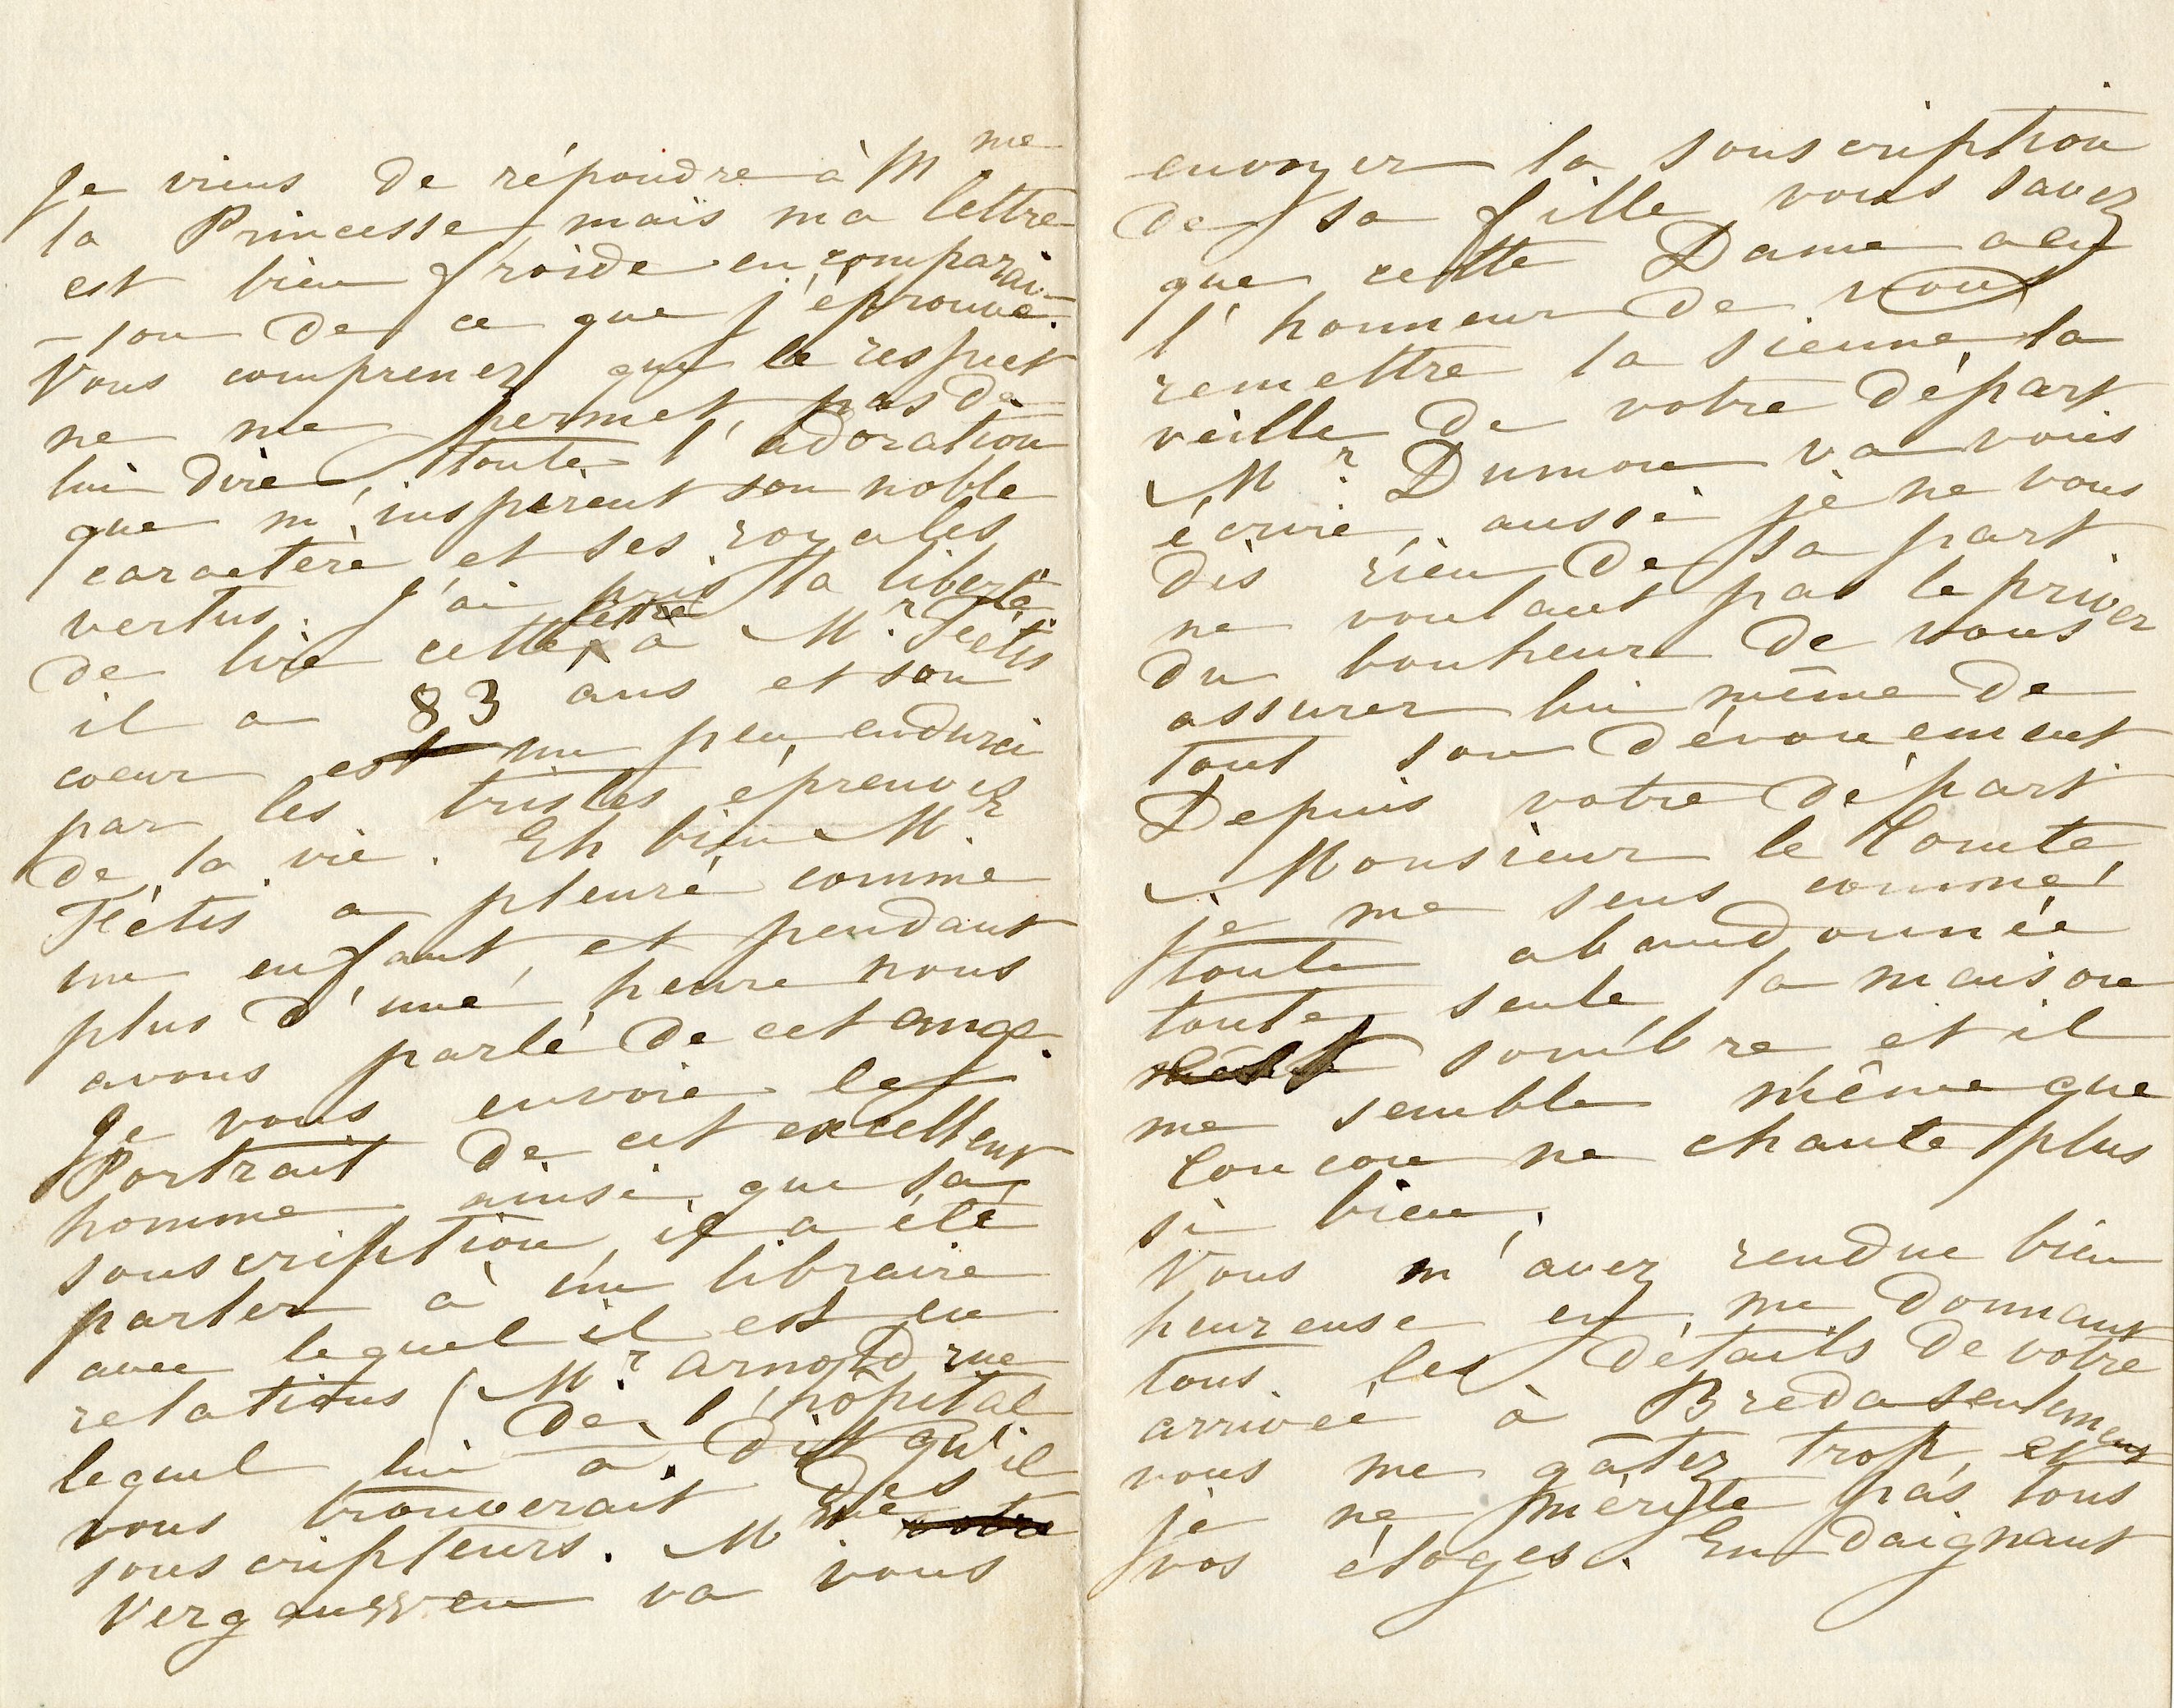 Je viens de répondre à Mme
la Princesse, mais ma lettre
est bien froide en comparai-
-son de ce que j'éprouve.
Vous comprenez que le respect
ne me permet pas de
lui dire toute l'adoration
que m'inspirent son noble
caractère et ses royales
vertus. J'ai pris la liberté
de lire cette lettre à Mr. Féétis
il a 83 ans et son
coeur est un peu endurci
par les tristes épreuves
de la vie. Eh bien Mr.
Féétis a pleuré comme
un enfant, et pendant
plus d'une heure nous
avons parlé de cet ange.
Je vous envoie le
Portrait de cet excellent
homme ainsi que sa
souscription, il a été
parler à un libraire
avec lequel il est en
relations (Mr. Arnold rue
de l'hôpital
lequel lui a dit qu'il
vous trouverait des
souscripteurs. Mme votre
Vergauwen va vous
envoyer la souscription
de sa fille, vous savez
que cette Dame a eu
l'honneur de vous
remettre la sienne la
veille de votre départ
Mr. Dumon va vous
écrire, aussi je ne vous
dis rien de sa part
ne voulant pas le priver
du bonheur de vous
assurer lui même de
tout son dévouement
Depuis votre départ
Monsieur le Comte,
je me sens comme
toute abandonnée
toute seule, la maison
est sombre et il
me semble même que
Coucou ne chante plus
si bien.
Vous m'avez rendue bien
heureuse en me donnant
tous les détails de votre
arrivée à Breda seulement
vous me gâtez trop, et
je ne mérite pas tous
vos éloges. En daignant